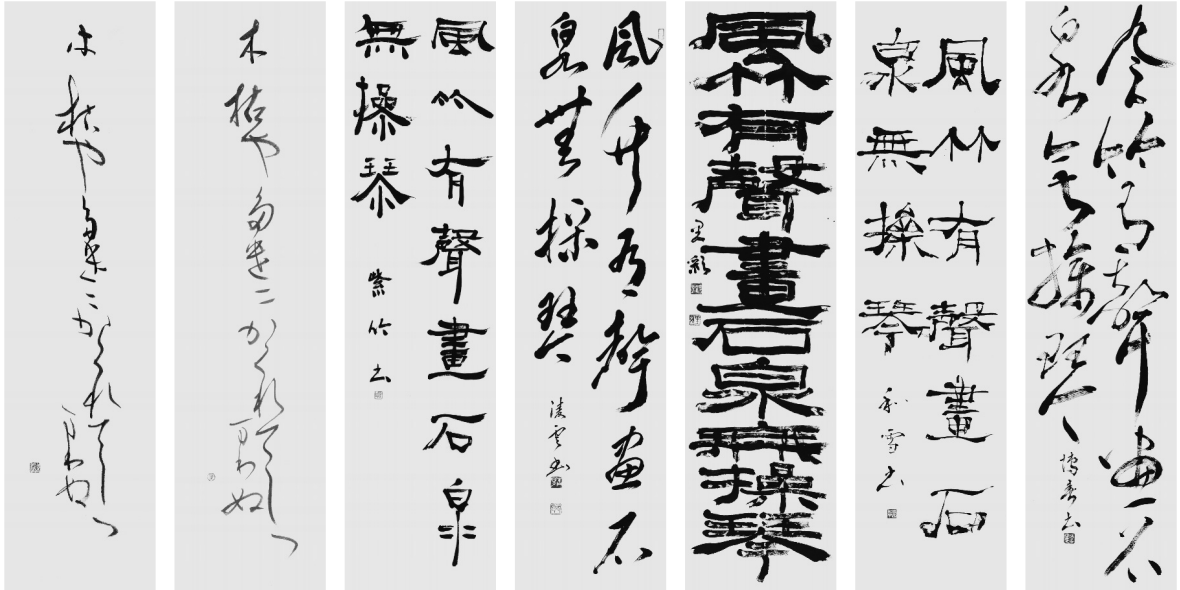 風竹有聲畫石
泉無操琴
風竹有聲畫石
泉無操琴 和雪書
風竹有聲畫石泉無操琴
風竹有聲畫石
泉無操琴
風竹有聲畫石泉
無操琴 紫竹書
木枯や多遣二かくれ帝しつ
まりぬ
木枯や多遣二かくれ帝しつ
まりぬ